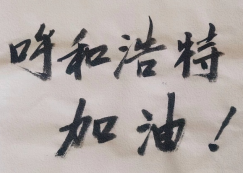 呼和浩特
加油！